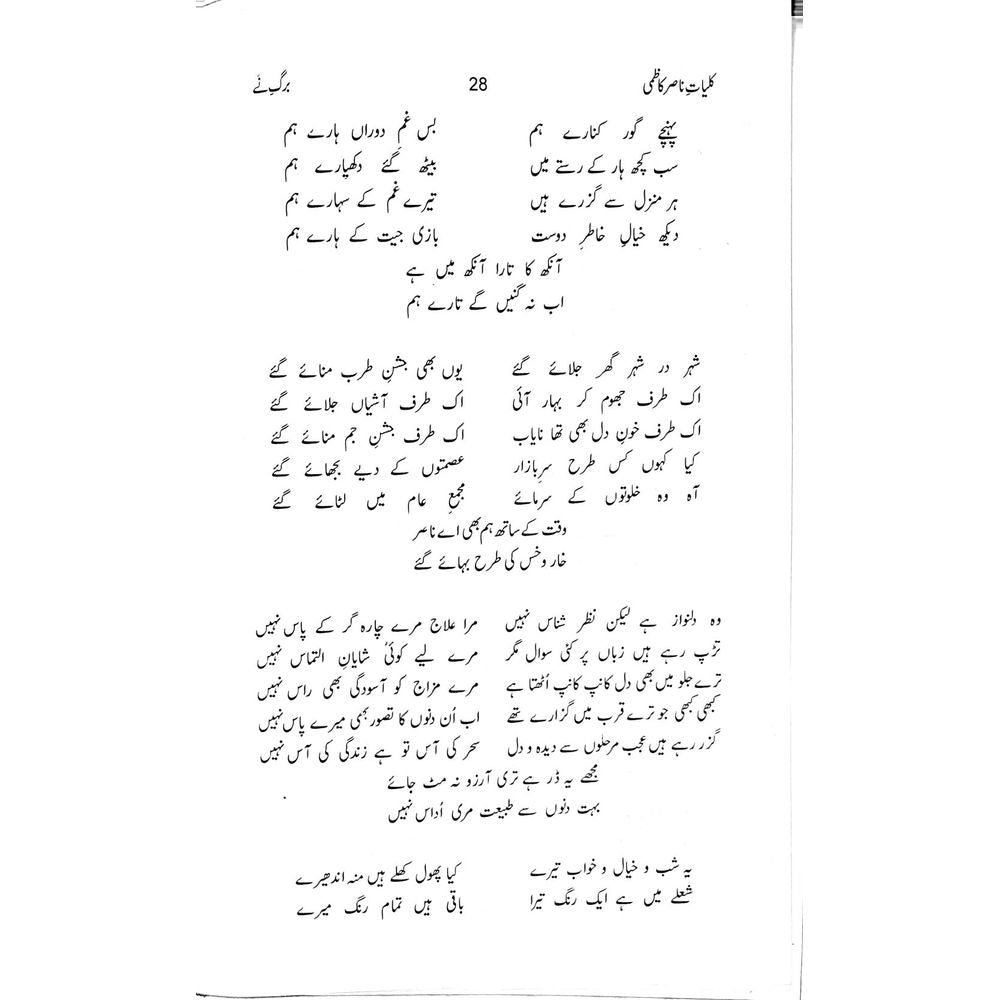 کلیاتِ ناصر کاظمی 28 برگِ نَے
پہنچے گور کنارے ہم بس غمِ دوراں ہارے ہم
سب کچھ ہار کے رستے میں بیٹھ گئے دکھیارے ہم
ہر منزل سے گزرے ہیں تیرے غم کے سہارے ہم
دیکھ خیالِ خاطرِ دوست بازی جیت کے ہارے ہم
آنکھ کا تارا آنکھ میں ہے
اب نہ گنیں گے تارے ہم
شہر در شہر گھر جلائے گئے یوں بھی جشنِ طرب منائے گئے
اک طرف جھوم کر بہار آئی اک طرف آشیاں جلائے گئے
اک طرف خونِ دل بھی تھا نایاب اک طرف جشنِ جم منائے گئے
کیا کہوں کس طرح سرِبازار عصمتوں کے دیے بجھائے گئے
آہ وہ خلوتوں کے سرمائے مجمعِ عام میں لٹائے گئے
وقت کے ساتھ ہم بھی اے ناصر
خار و خس کی طرح بہائے گئے
وہ دلنواز ہے لیکن نظر شناس نہیں مرا علاج مرے چارہ گر کے پاس نہیں
تڑپ رہے ہیں زباں پر کئی سوال مگر مرے لیے کوئی شایانِ التماس نہیں
ترے جلو میں بھی دل کانپ کانپ اُٹھتا ہے مرے مزاج کو آسودگی بھی راس نہیں
کبھی کبھی جو ترے قرب میں گزارے تھے اب اُن دنوں کا تصور بھی میرے پاس نہیں
گزر رہے ہیں عجب مرحلوں سے دیدہ و دل سحر کی آس تو ہے زندگی کی آس نہیں
مجھے یہ ڈر ہے تری آرزو نہ مٹ جائے
بہت دنوں سے طبیعت مری اُداس نہیں
یہ شب و خیال و خواب تیرے کیا پھول کھلے ہیں منہ اندھیرے
شعلے میں ہے ایک رنگ تیرا باقی ہیں تمام رنگ میرے